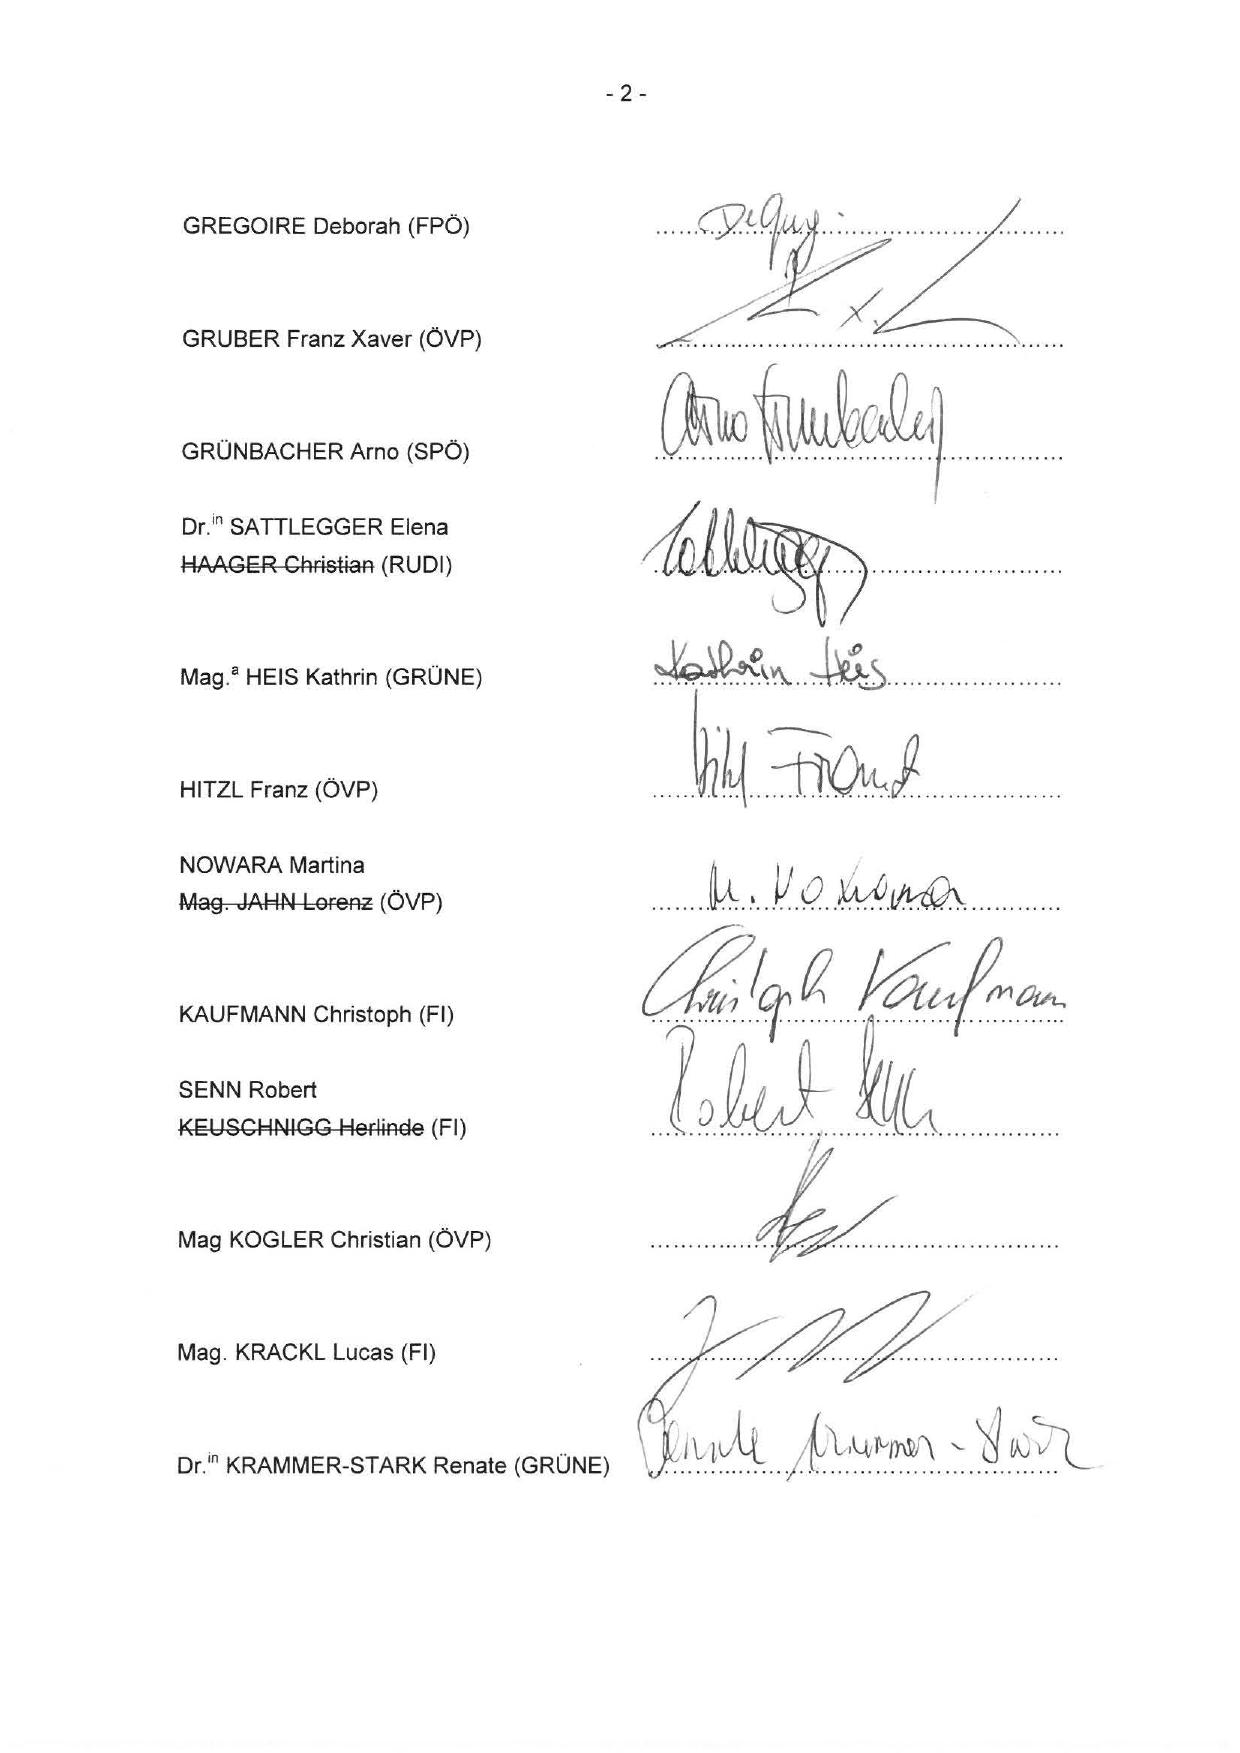 - 2 -
GREGOIRE Deborah (FPÖ)
GRUBER Franz Xaver (ÖVP)
GRÜNBACHER Arno (SPÖ)
Arno Grünbacher
Dr.in SATTLEGGER Elena
HAAGER Christian (RUDI)
Mag.a HEIS Kathrin (GRÜNE)
Kathrin Heis
HITZL Franz (ÖVP)
Hitzl Franz
NOWARA Martina
Mag. JAHN Lorenz (ÖVP)
M. Nowara
KAUFMANN Christoph (FI)
Christoph Kaufmann
SENN Robert
KEUSCHNIGG Herlinde (FI)
Robert Senn
Mag KOGLER Christian (ÖVP)
Mag. KRACKL Lucas (FI)
Dr.in KRAMMER-STARK Renate (GRÜNE)
Renate Krammer-Stark